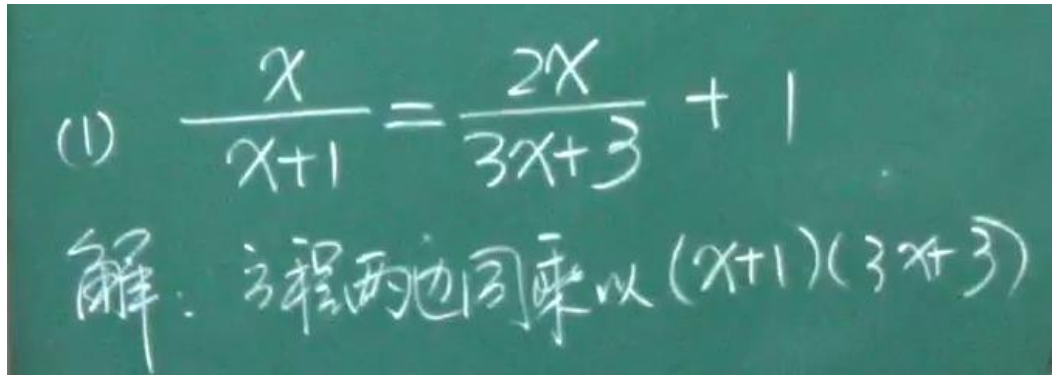 (1) x/(x+1) = 2x/(3x+3) + 1
解：方程两边同乘以(x+1)(3x+3)